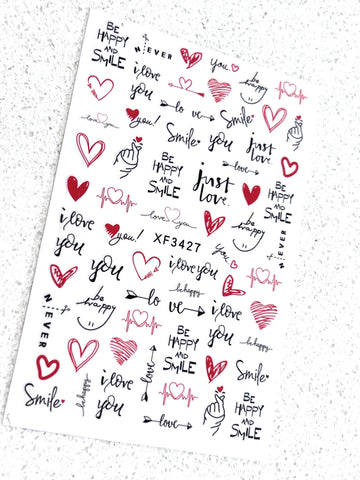 BE
HAPPY
AND
SMILE
NEVER
you
i love
you
be
happy
lo ve
Smile
love you
you!
Smile
love
just
love.
BE
HAPPY
AND
SMILE
just
love.
BE
HAPPY
AND
SMILE
i love
you
love you
you!
XF3427
you
i love you
you
NEVER
be
happy
lo ve
be happy
i love
you
NEVER
BE
HAPPY
AND
SMILE
be happy
Smile
be happy
i love
you
love
Smile
love
BE
HAPPY
AND
SMILE